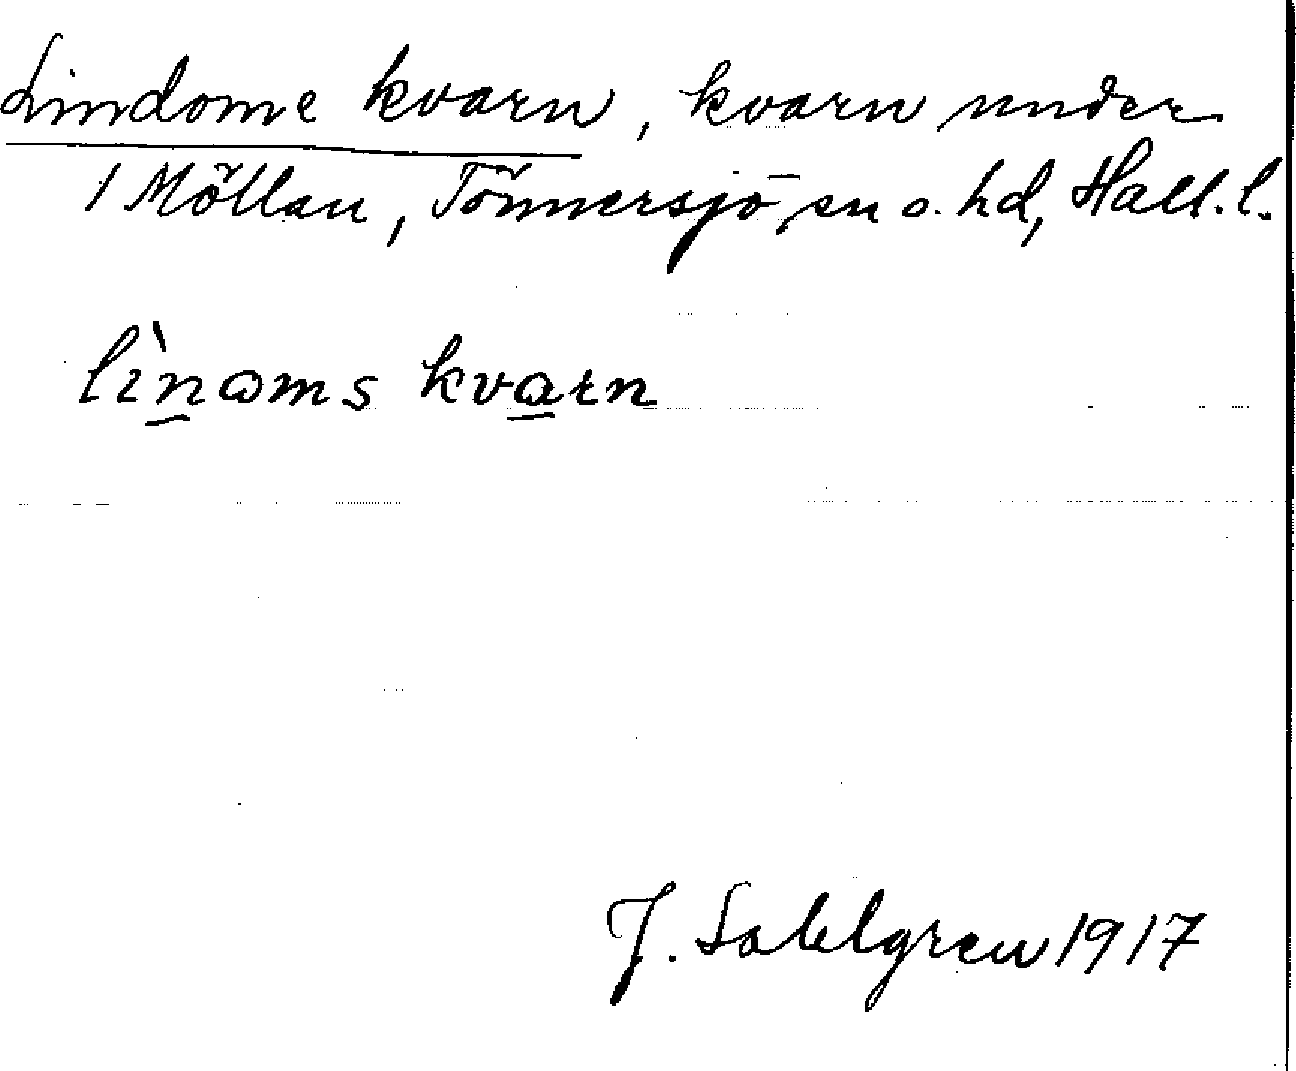 Lindome kvarn, kvarn under
1 Möllan, Tönnersjö sn o. hd, Hall. l.
lìnoms kvarn
J. Sahlgren 1917